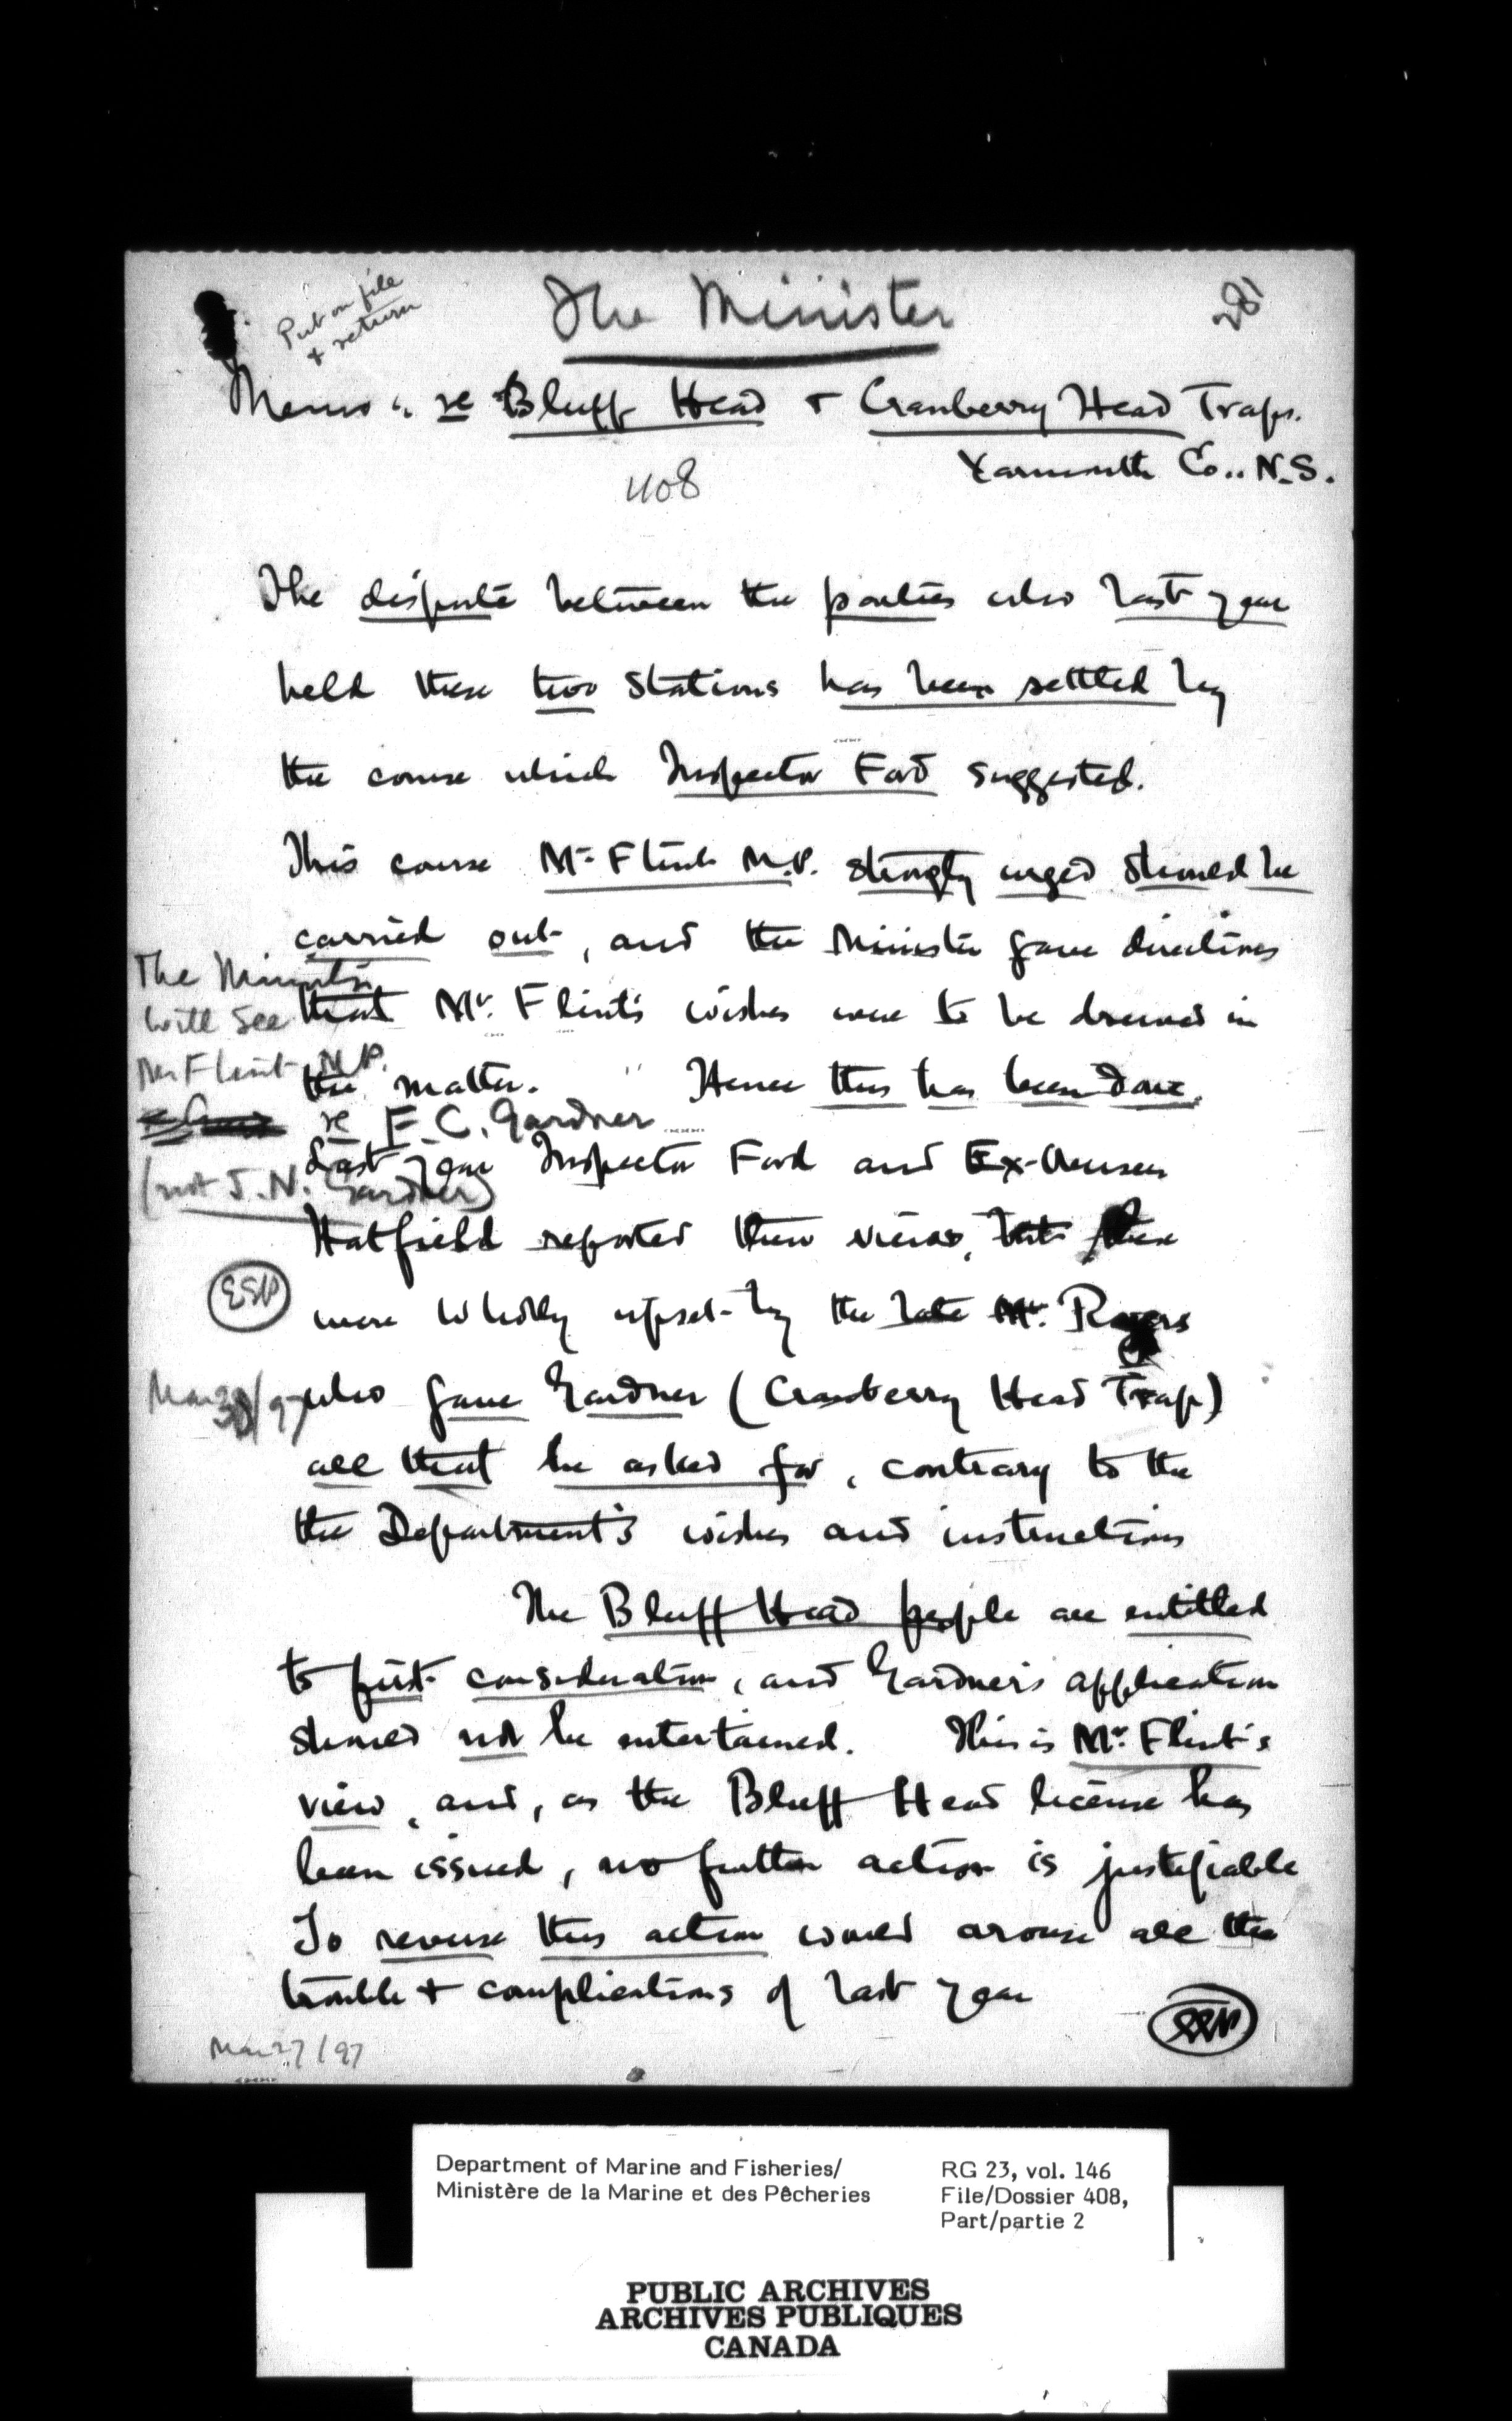 Put on file
& return
The Minister
281
Memo: re Bluff Head & Cranberry Head Traps.
Yarmouth Co.. N.S.
408
The dispute between the parties who last year
held these two stations has been settled by
the course which Inspector Ford suggested.
This course Mr. Flint M.P. strongly urged should be
carried out, and the Minister gave directions
that Mr. Flint's wishes were to be deemed in
the matter. Hence this has been done.
Last year Inspector Ford and Ex-Overseer
Hatfield reported their views, but these
were wholly upset by the late Mr. Rogers
who gave Gardner (Cranberry Head Trap)
all that he asked for, contrary to the
the Department's wishes and instructions
The Bluff Head people are entitled
to first consideration, and Gardner's application
should not be entertained. This is Mr. Flint's
view, and, as the Bluff Head license has
been issued, no further action is justifiable
To reverse this action would arouse all the
trouble & complications of last year
Mar 27/97
The Minister
will see
Mr Flint M.P.
re F. C. Gardner
(not J. N. Gardner)
Mar 30/97
Department of Marine and Fisheries/
Ministère de la Marine et des Pêcheries
RG 23, vol. 146
File/Dossier 408,
Part/partie 2
PUBLIC ARCHIVES
ARCHIVES PUBLIQUES
CANADA